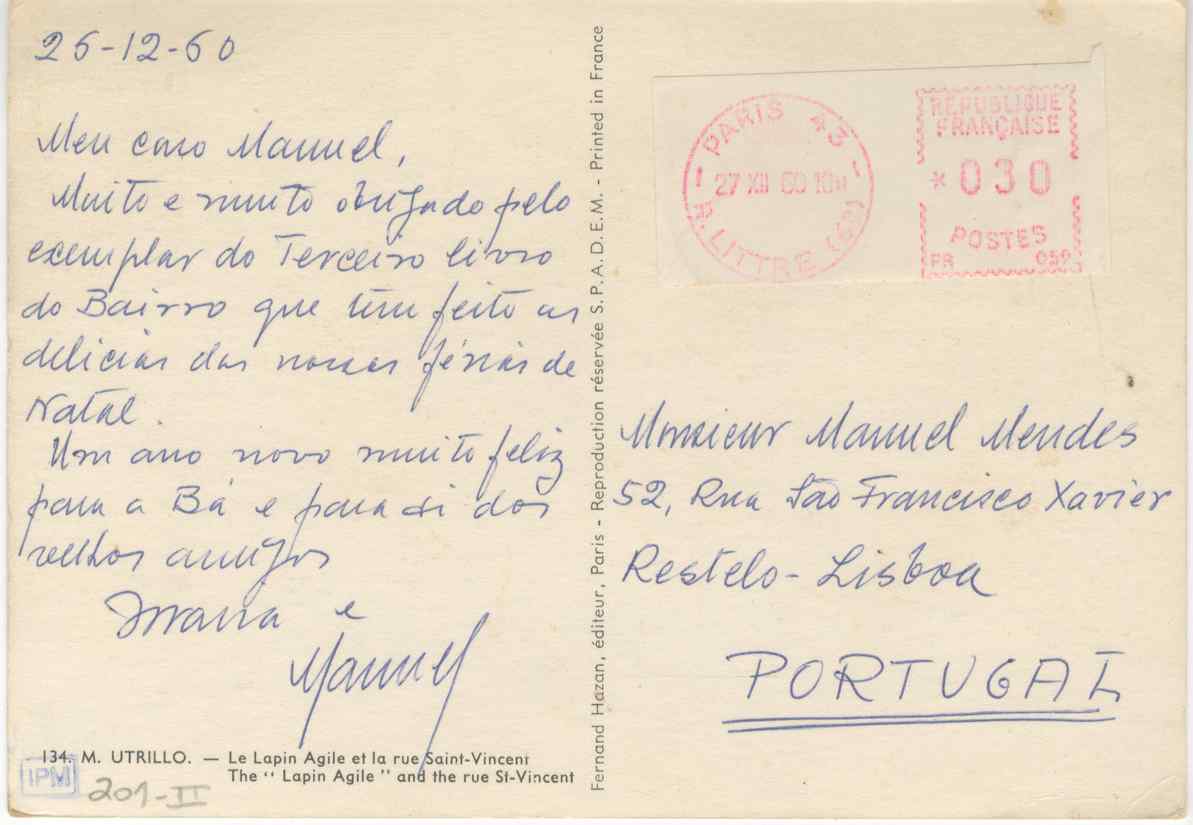 26-12-60
Meu caro Manuel,
Muito e muito obrigado pelo
exemplar do Terceiro livro
do Bairro que tem feito as
delicias das nossas férias de
Natal.
Um ano novo muito feliz
para a Bá e para si dos
velhos amigos
e
Manuel
134. M. UTRILLO. — Le Lapin Agile et la rue Saint-Vincent
The “ Lapin Agile ” and the rue St-Vincent
IPM
201-II
Fernand Hazan, éditeur, Paris - Reproduction réservée S.P.A.D.E.M. - Printed in France
PARIS 43
27 XII 60
R. LITTRE (6e)
REPUBLIQUE
FRANÇAISE
*030
POSTES
Monsieur Manuel Mendes
52, Rua São Francisco Xavier
Restelo - Lisboa
PORTUGAL